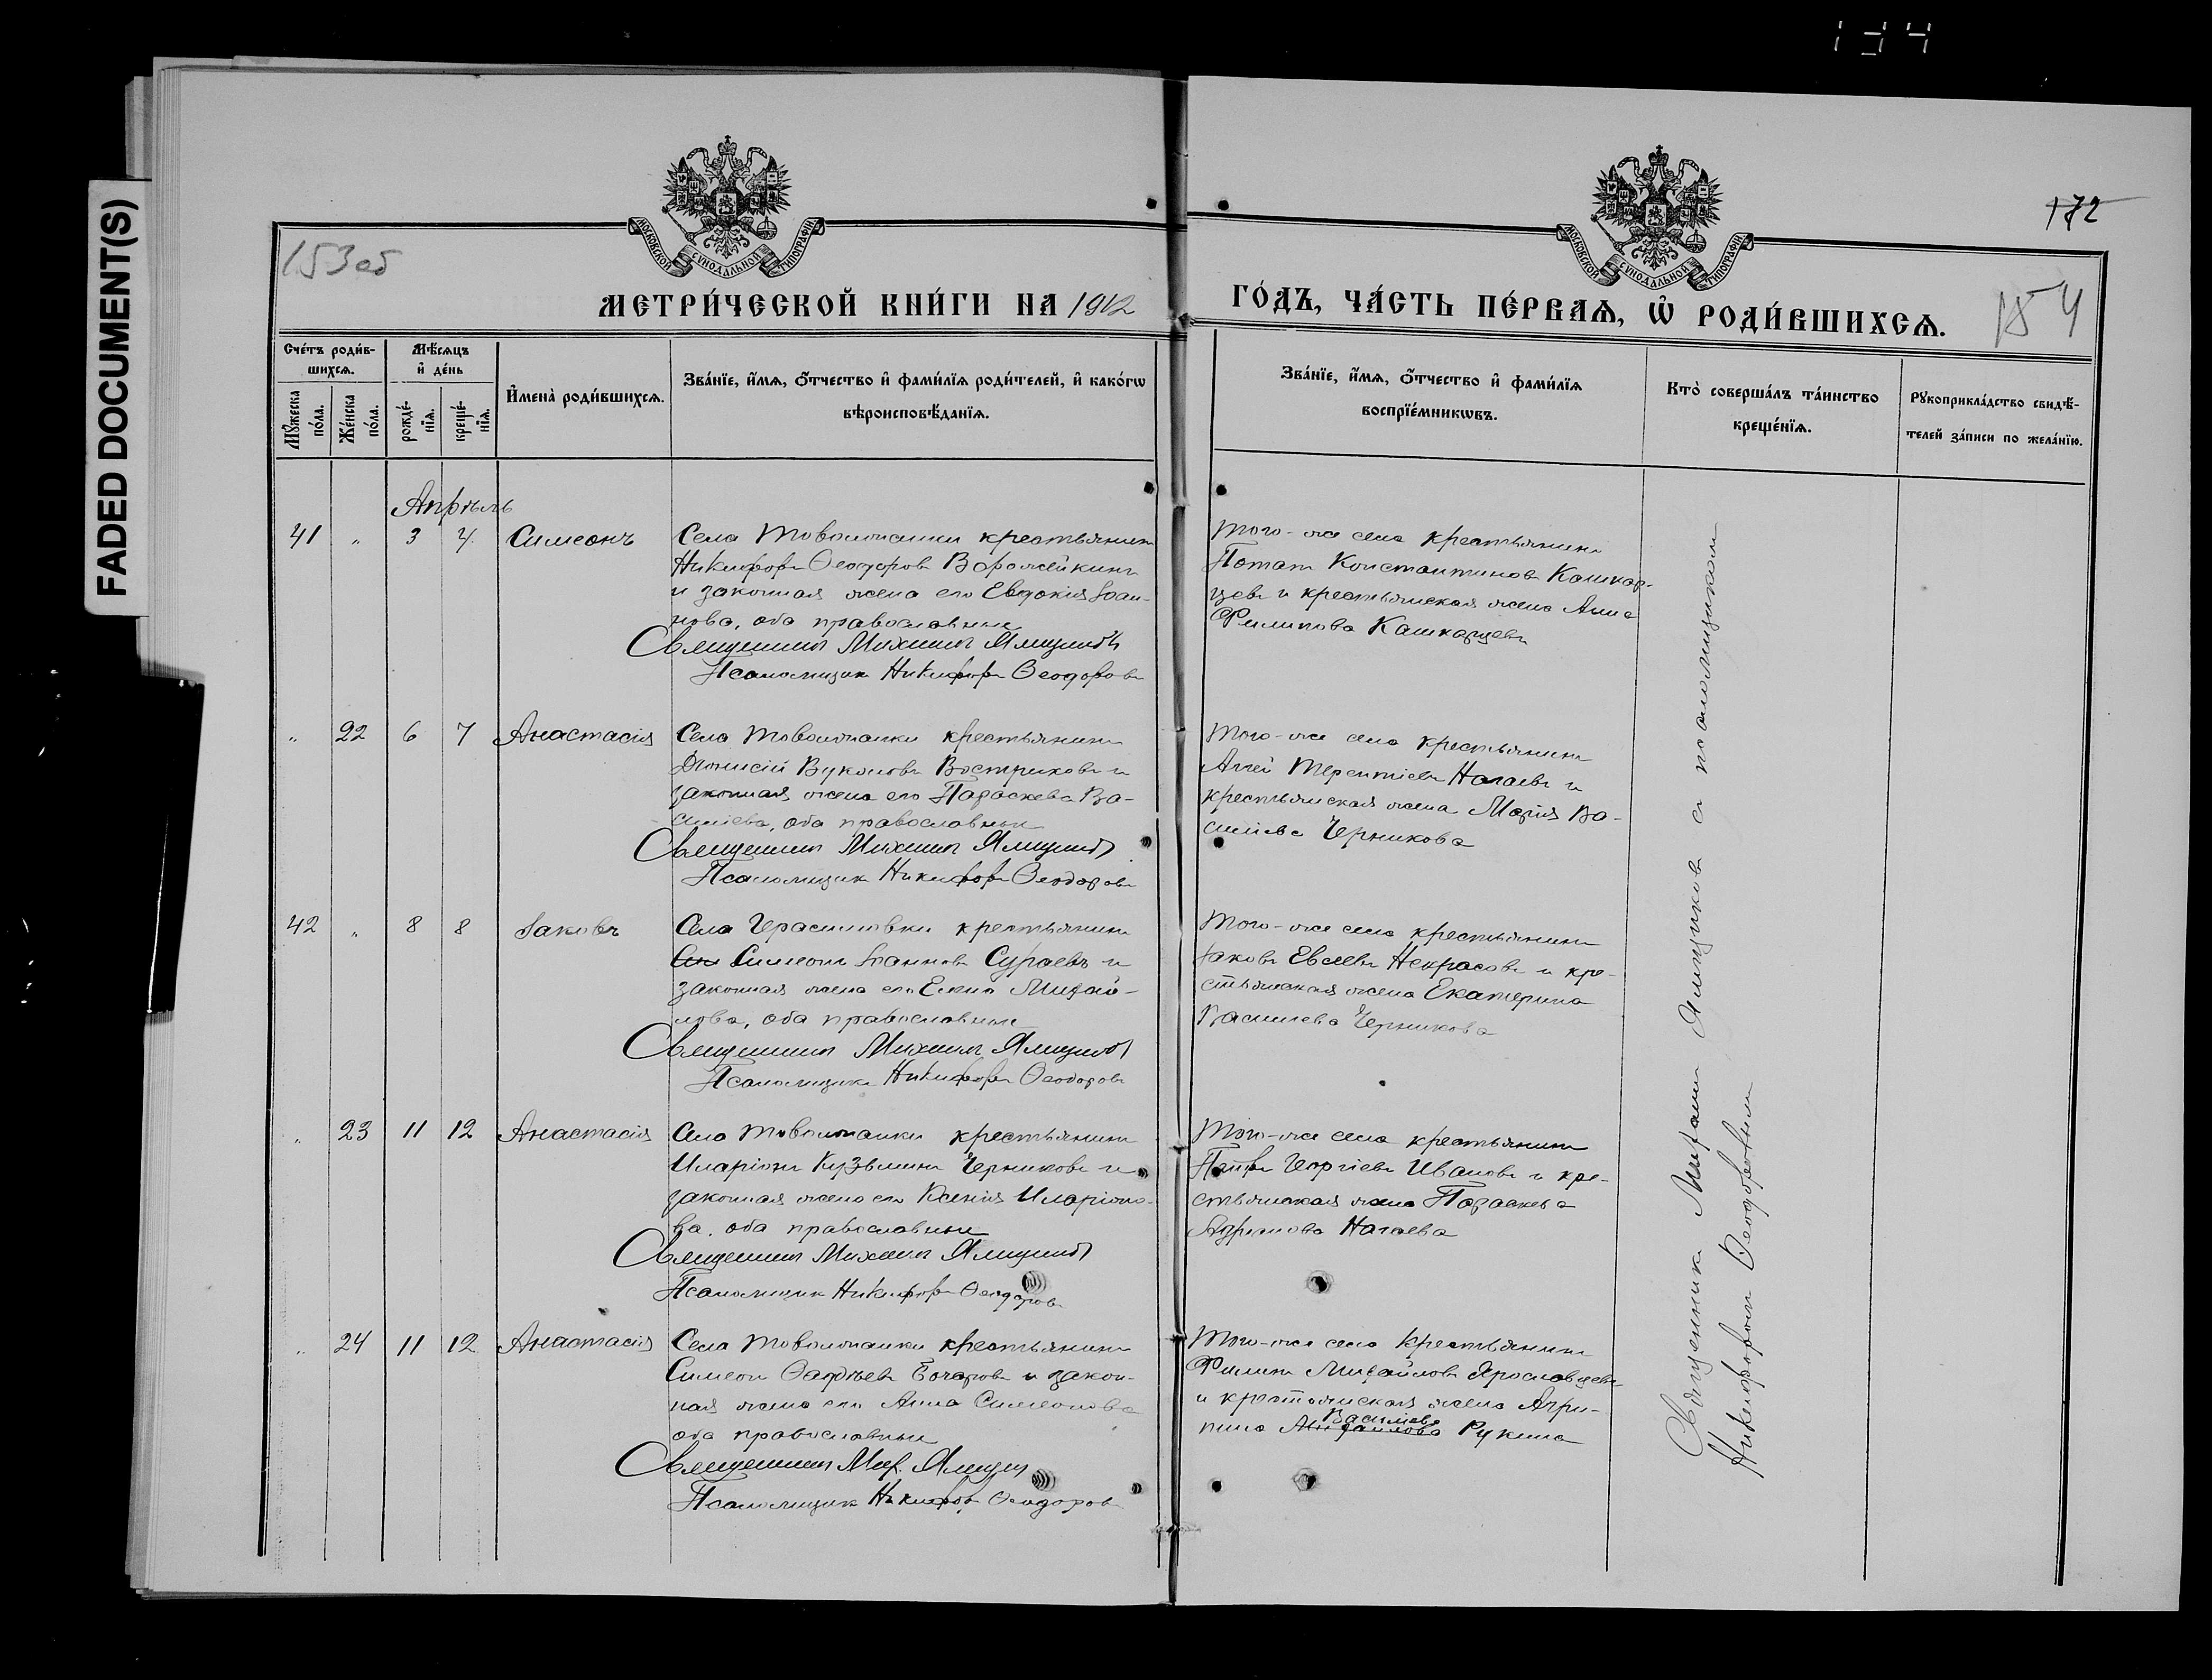 FADED DOCUMENT(S)
134
172
153об
154
МОСКОВСКОЙ СѴНОДАЛЬНОЙ ТИПОГРАФІИ
МОСКОВСКОЙ СѴНОДАЛЬНОЙ ТИПОГРАФІИ
МЕТРИ́ЧЕСКОЙ КНИ́ГИ НА 1912
ГО́ДЪ, ЧА́СТЬ ПЕ́РВАѦ, Ѿ РОДИ́ВШИХСѦ.
Сче́тъ роди́в-
шихсѧ.
Мѣ́сѧцъ
и҆ де́нь
Мꙋ́жеска
по́ла.
Же́нска
по́ла.
рожде́-
нїѧ.
креще́-
нїѧ.
И҆мена̀ роди́вшихсѧ.
Зва́нїе, и҆́мѧ, ѻ҆́тчество и҆ фами́лїѧ роди́телей, и҆ како́гѡ
вѣроисповѣ́данїѧ.
Зва́нїе, и҆́мѧ, ѻ҆́тчество и҆ фами́лїѧ
воспрїе́мникѡвъ.
Кто̀ соверша́лъ та́инство
креще́нїѧ.
Рꙋкоприкла́дство свидѣ́-
телей за́писи по жела́нїю.
Апрѣль
41 " 3 4 Симеонъ
Села Товолжанки крестьянинъ
Никифоръ Ѳеодоровъ Ворожейкинъ
и законная жена его Евдокія Іоан-
нова, оба православные
Священникъ Михаилъ Ямщиковъ
Псаломщикъ Никифоръ Ѳеодоровъ
Того-же села крестьянинъ
Потапъ Константиновъ Кашкар-
цевъ и крестьянская жена Анна
Филипова Кашкарцева
" 22 6 7 Анастасія
Села Товолжанки крестьянинъ
Діонисій Вуколовъ Востриковъ и
законная жена его Параскева Ва-
силіева, оба православные
Священникъ Михаилъ Ямщиковъ
Псаломщикъ Никифоръ Ѳеодоровъ
Того-же села крестьянинъ
Аггей Терентіевъ Нагаевъ и
крестьянская жена Марія Ва-
силіева Черникова
42 " 8 8 Іаковъ
Села Герасимовки крестьянинъ
Симеонъ Іоанновъ Сураевъ и
законная жена его Елена Михай-
лова, оба православные
Священникъ Михаилъ Ямщиковъ
Псаломщикъ Никифоръ Ѳеодоровъ
Того-же села крестьянинъ
Іаковъ Евсеевъ Некрасовъ и кре-
стьянская жена Екатерина
Василиева Черникова
" 23 11 12 Анастасія
Села Товолжанки крестьянинъ
Иларіонъ Кузьминъ Черниковъ и
законная жена его Ксенія Иларіоно-
ва, оба православные
Священникъ Михаилъ Ямщиковъ
Псаломщикъ Никифоръ Ѳеодоровъ
Того-же села крестьянинъ
Георгіевъ Ивановъ и кре-
стьянская жена Параскева
Адрианова Нагаева
" 24 11 12 Анастасія
Села Товолжанки крестьянинъ
Симеонъ Бочаровъ и закон-
ная жена его Анна Симеонова
оба православные
Священникъ Мих. Ямщик
Псаломщикъ Никифоръ Ѳеодоровъ
Того-же села крестьянинъ
Филипъ Михайловъ Ярославцевъ
и крестьянская жена Агри-
Василіева
пина Михайлова Рукина
Священникъ Михаилъ Ямщиковъ съ псаломщикомъ
Никифоромъ Ѳеодоровымъ